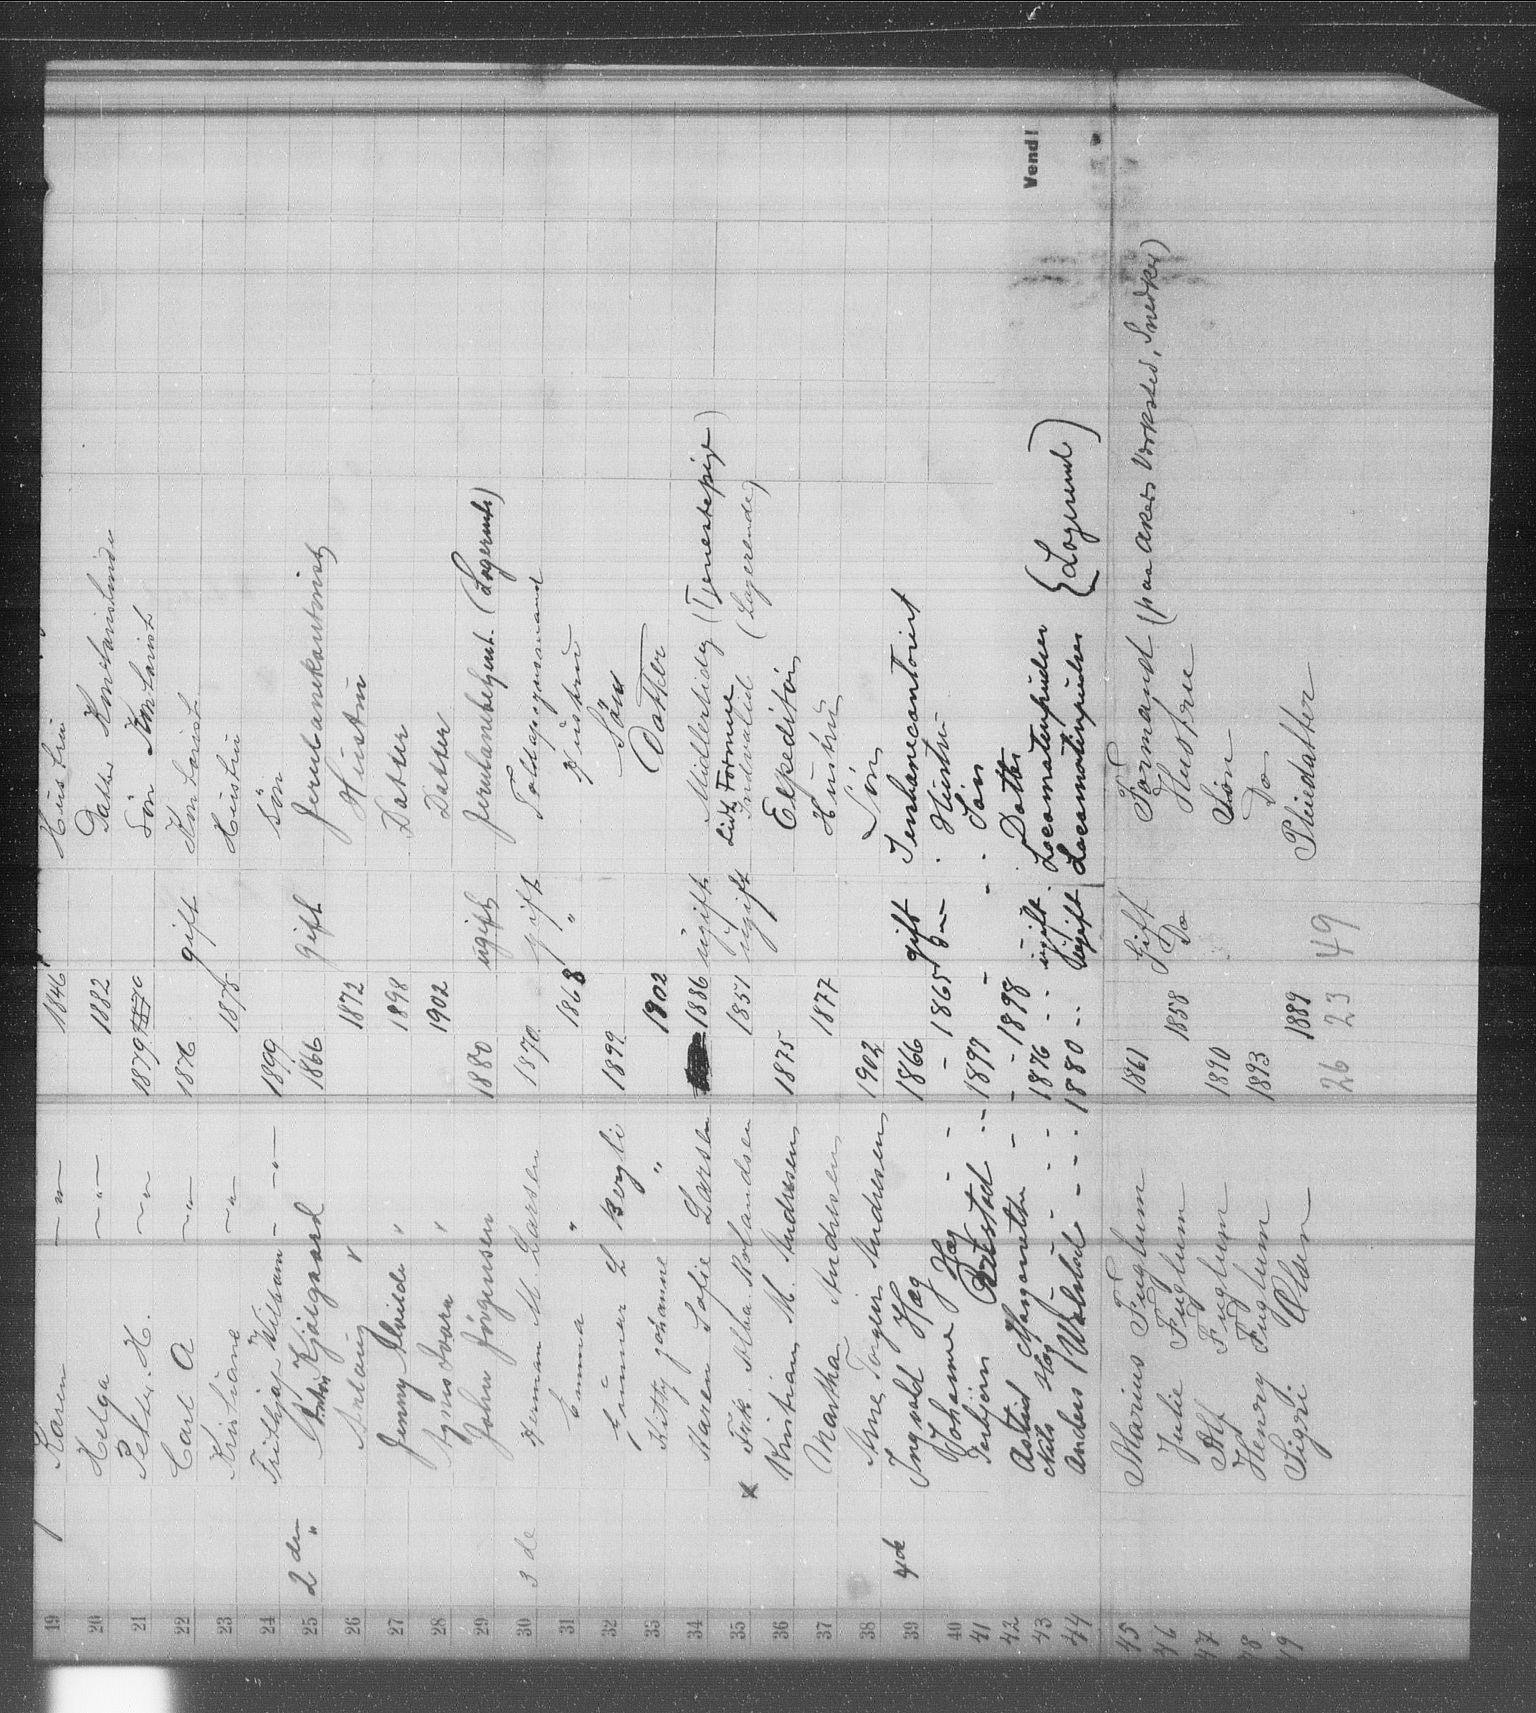 19 Karen — " — 1846 " Hustru
20 Helga — " — 1882 Datter Kontoristinde
21 Peter H. — " 1879 Søn Kontorist
22 Carl A — " — 1876 gift Kontorist
23 Kristiane — " — 1875 Hustru
24 Fridtjof Wilhelm — " — 1899 Søn
25 2 den " Kjölgaard 1866 gift Jernbanekontorist
26 " 1872 Hustru
27 Jenny Alvilde " 1898 Datter
28 " 1902 Datter
29 John Jörgensen 1880 ugift Jernbanebetjent. (Logerende)
30 3 de Herman M. Larsen 1870 gift Toldopsynsmand
31 Emma " 1868 " Hustru
32 Gunnar L Bergli 1899 Sön
33 Kitty Johanne " 1902 Datter
34 Maren Sofie Larsen 1886 ugift Midlertidig (Tjenestepige)
35 x Frk. Alba Rolandsen 1851 ugift Lidt Formue Indvalid (Logerende)
36 Kristian M. Andresen 1875 Expeditör
37 Martha Andresen 1877 Hustru
38 Arne Torgeir Andresen 1902 Sön
39 4de Ingvald Hög 1866 gift Jernbanecontorist
40 Johanne Hög — - — 1865 Hustru
41 Torbjörn 1897 - Sön
42 Astrid Margarethe - - 1898 - Datter
43 1876 ugift Locomotivpudser
44 Anders 1880 ugift Locomotivpudser { (Logerende)
45 Marius Fuglum 1861 Gift Formand (paa Akers Værksted, Snedker)
46 Julie Fuglum 1858 Do Hustru
47 Alf Fuglum 1890 Sön
48 Henry Fuglum 1893 Do
49 Sigri Olsen 1889 Pleiedatter
26 23 49
Vend!